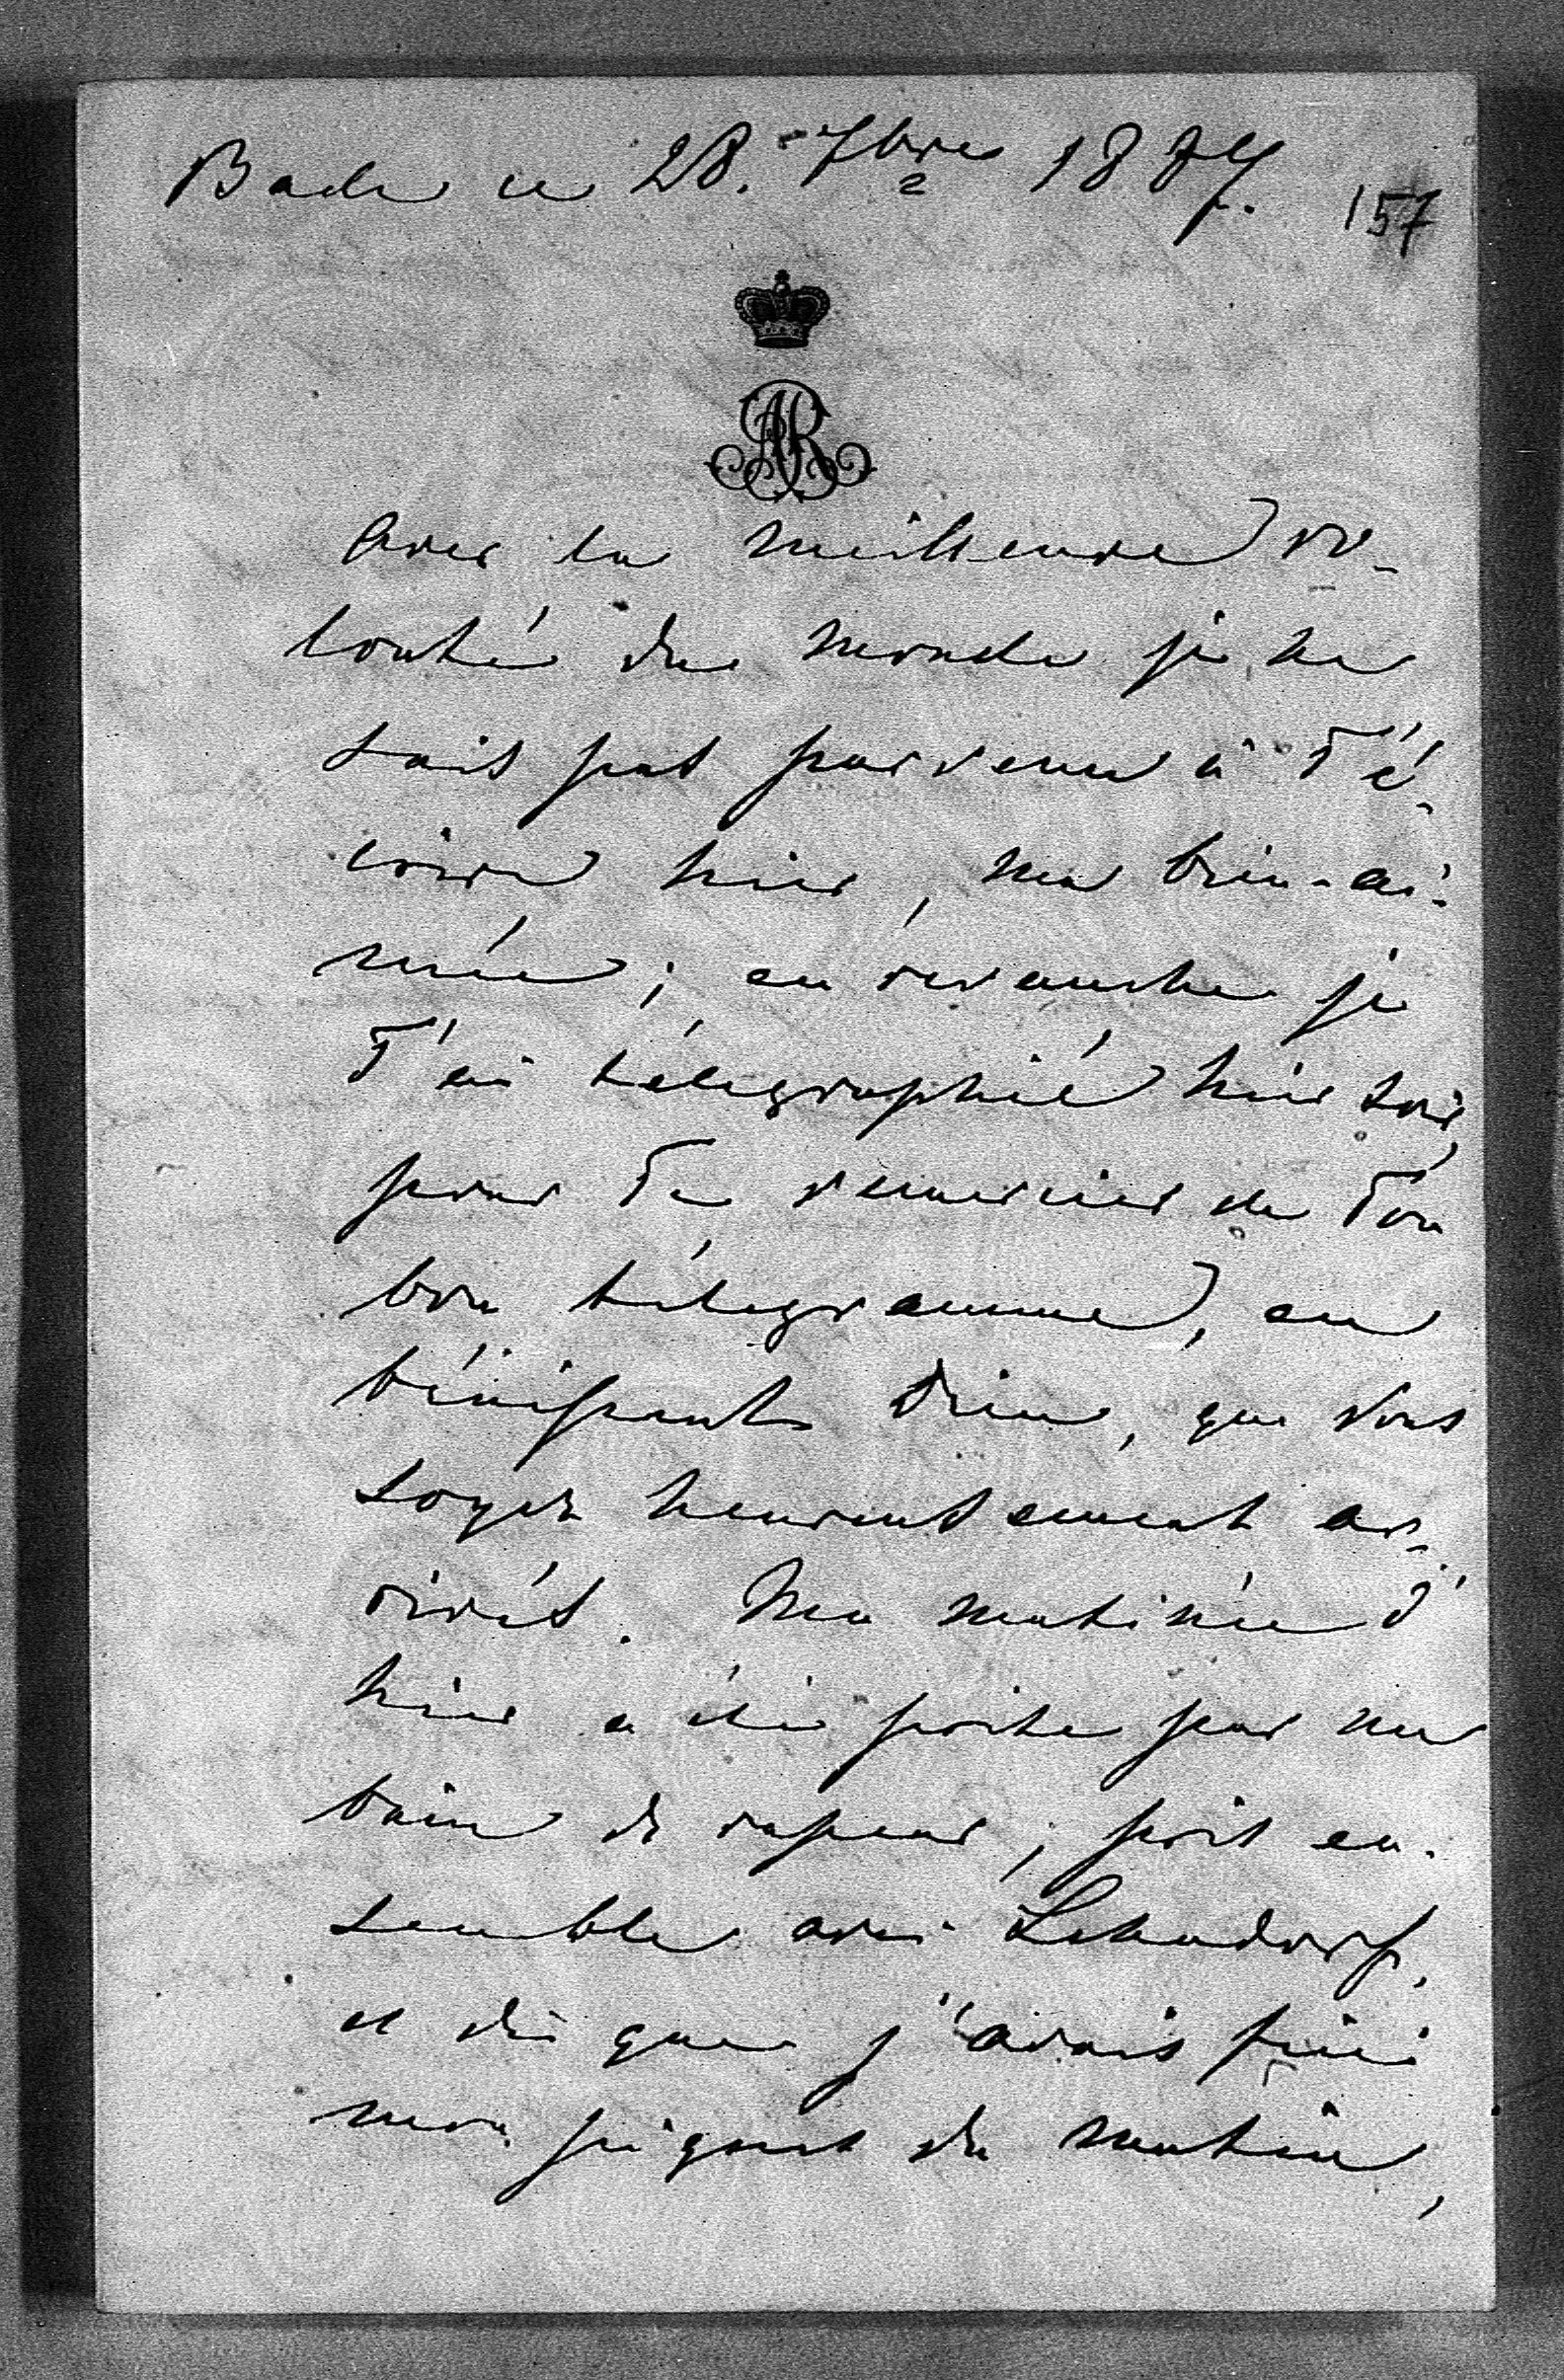 Bade ce 28. 7bre 1874.
157
AR
Avec la meilleure vo-
lonté du monde je ne
suis pas parvenu à T'é-
crire hier, ma bien-ai-
mée; en revanche je
T'ai télégraphié hier soir,
pour Te remercier de Ton
bon télégramme, en
bénissant Dieu, que Vous
soyez heureusement ar-
rivés. Ma matinée d'
hier a été prise par un
bain de vapeur, pris en-
semble avec Lehndorf,
et dès que j'avais fini
mon du matin,